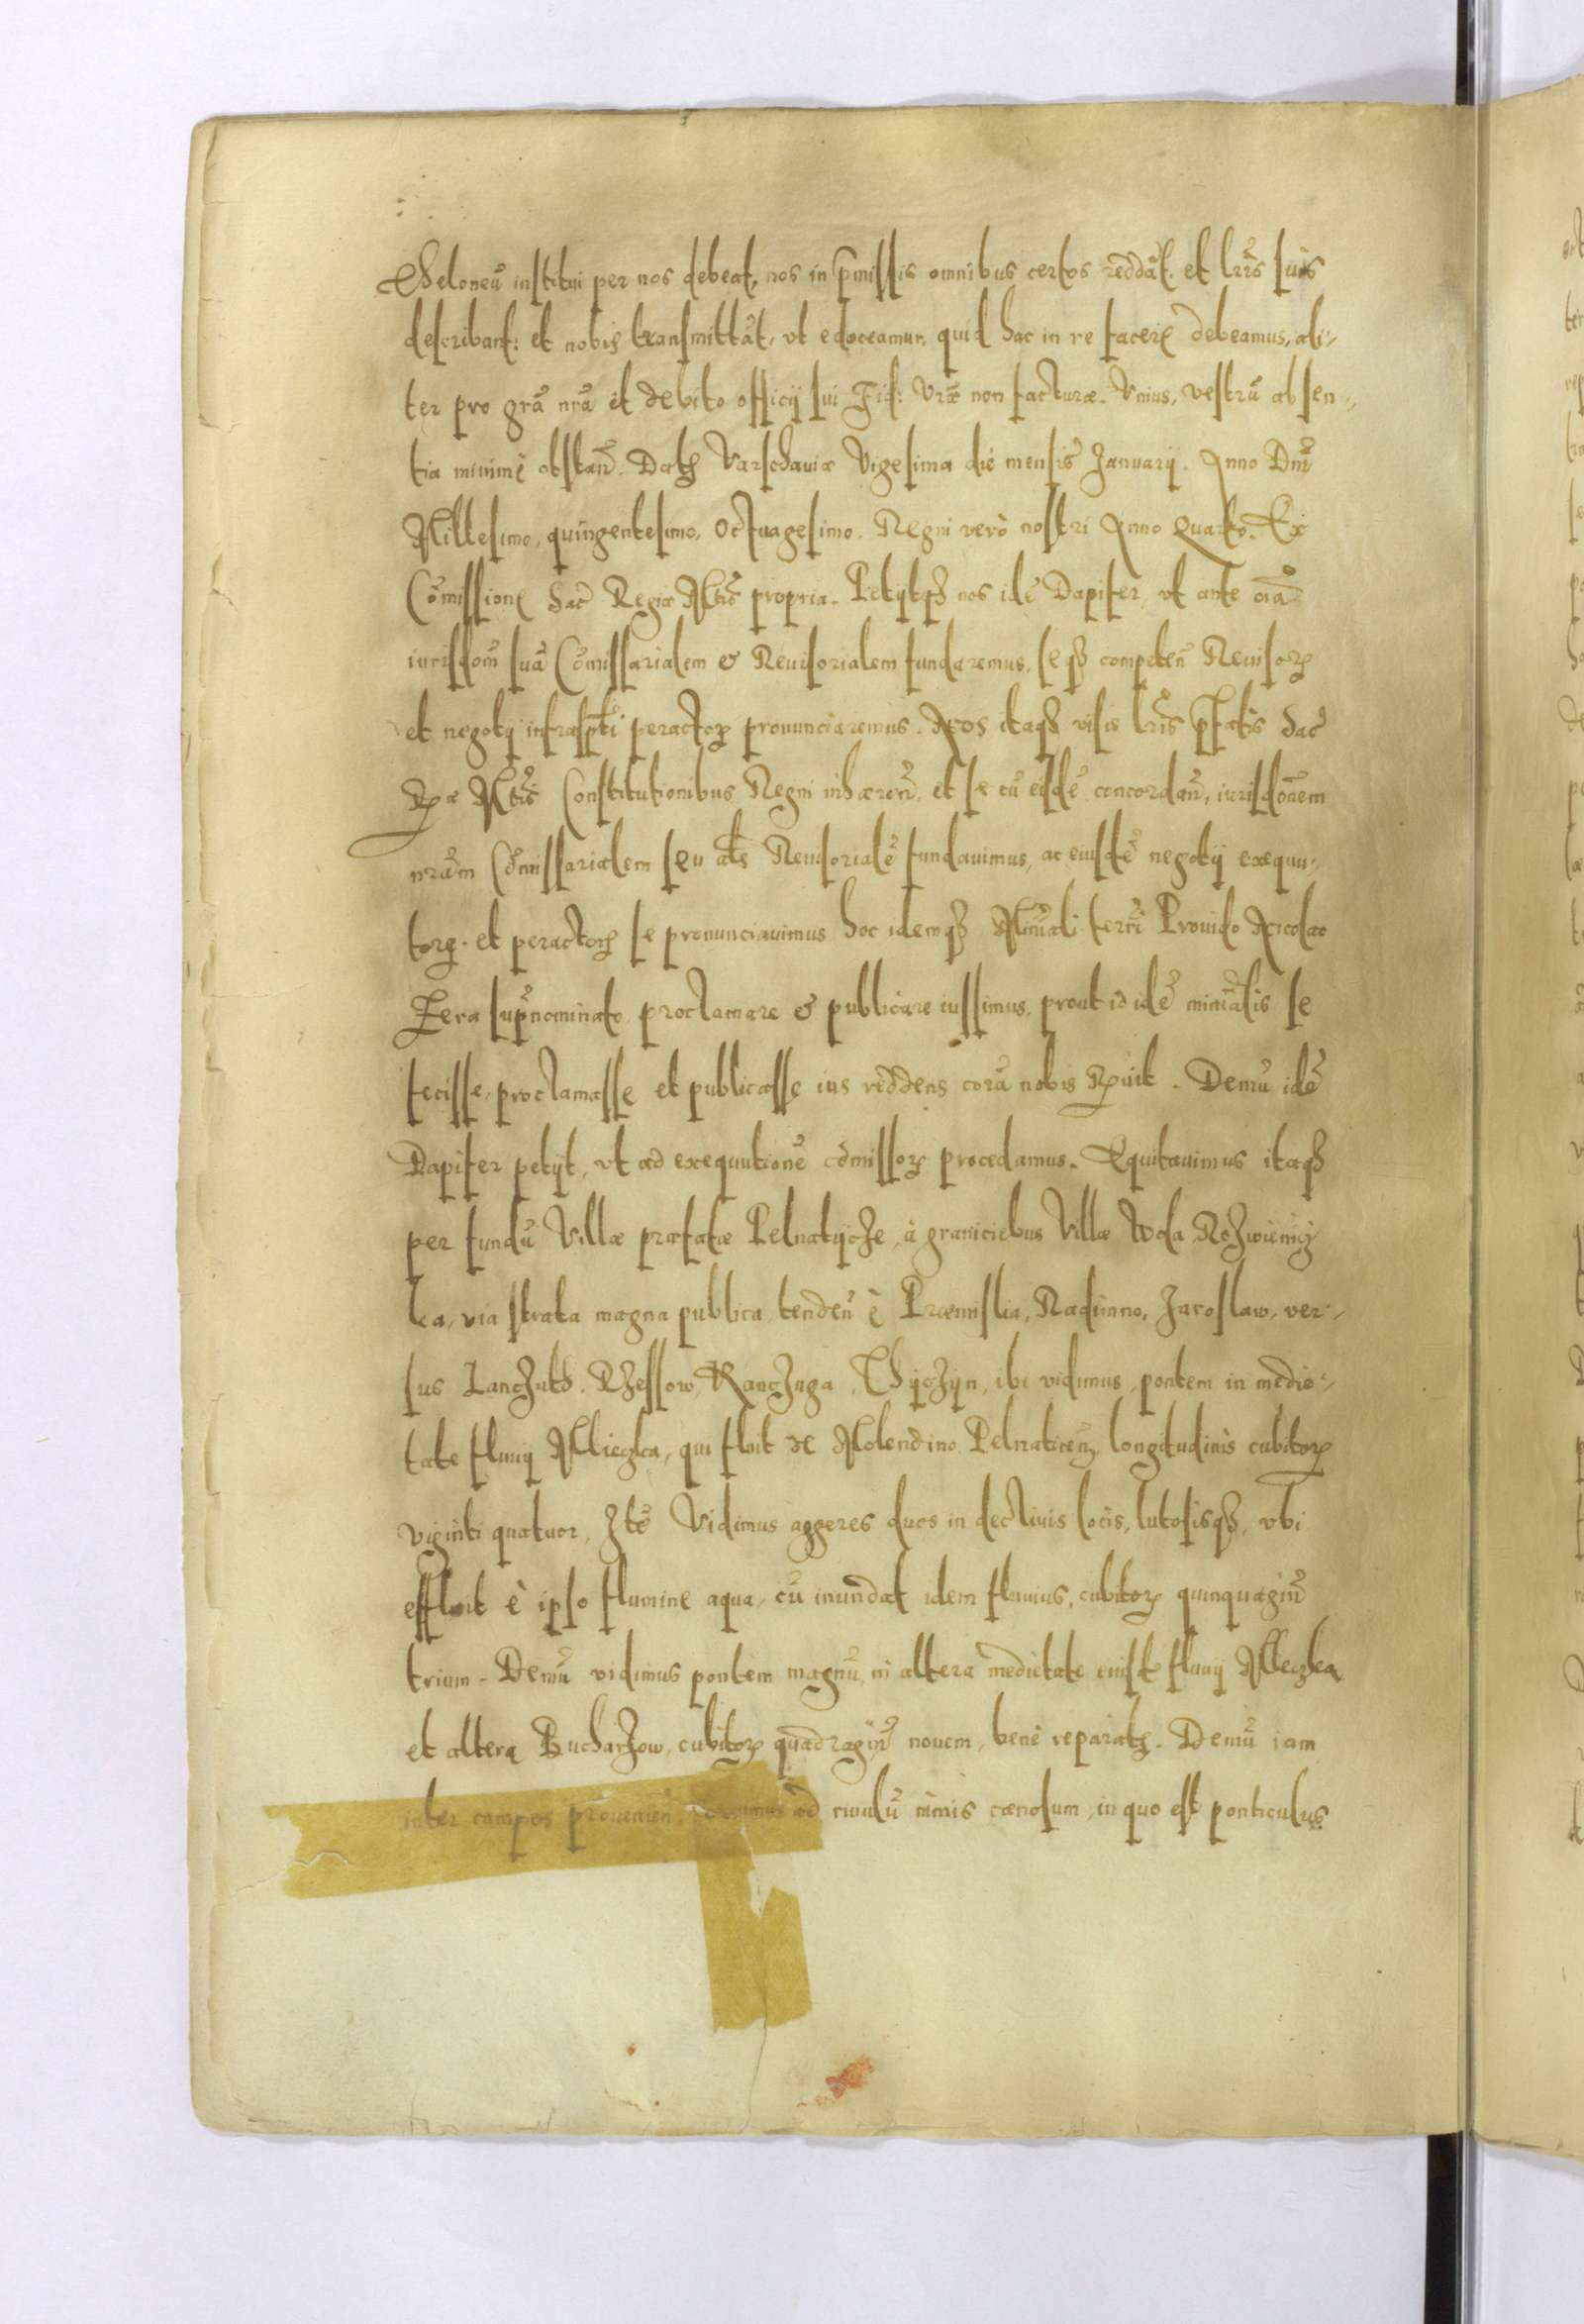 Theloneũ institui per nos debeat, nos in p̃missis omnibus certos reddãt. et lr̃is suis
describant: et nobis transmittãt, vt edoceamur, quid hac in re facere debeamus, ali-
ter pro gr̃a nr̃a et debito officij sui Fid: Vr̃æ non facturæ. Vnius, vestrũ absen-
tia minimè obstañ. Datȝ Varschauiæ Vigesima die mensis Januarij. Anno Dñi
Millesimo, quingentesimo, Octuagesimo. Regni verò nostri Anno Quarto. Ex
Cõmissione Sac̃ Regiæ Mt̃is propria. Petijtqȝ nos idẽ Dapifer, vt ante oĩa
iurisdoñ suã Cõmissarialem & Reuisorialem fundaremus, seqȝ competeñ Reuisorꝫ
et negotij infrasp̃ti peractorꝫ pronunciaremus. Nos itaqȝ visis lr̃is p̃fatis Sac̃
Rꝫæ Mt̃is Constitutionibus Regni inhæreñ, et se cũ eisdẽ concordañ, iurisdõnem
nr̃am Cõmissarialem seu als Reuisorialẽ fundauimus, ac eiusdẽ negotij exequu-
torꝫ. et peractorꝫ se pronunciauimus hoc idemqȝ Min̄ali terr̃i Prouido Nicolao
Zera sup̃nominato, proclamare & publicare iussimus, prout id idẽ minĩalis se
fecisse, proclamasse et publicasse ius reddens corã nobis Rꝫuit. Demũ idẽ
Dapifer petijt, vt ad exequutionẽ cõmissorꝫ procedamus. Equitauimus itaqȝ
per fundũ Villæ præfatæ Pelnatijcze, à graniciebus Villæ Wola Rozwieniȝ
ka, via strata magna publica, tendeñ è Præmislia, Radimno, Jaroslaw, ver-
sus Lanczuth, Rzessow, Kanczuga, Thyczyn, ibi vidimus, pontem in medie-
tate fluuij Mleczka, qui fluit de Molendino Pelnaticeñ, longitudinis cubitorꝫ
viginti quatuor, Itẽ Vidimus aggeres duos in decliuis locis, lutosisqȝ, vbi
effluit è ipso flumine aqua, cũ inundat idem fluuius, cubitorꝫ quinquagiñ
trium. Demũ vidimus pontem magnũ, in altera medietate eiusd̃ fluuij Mleczka
et altera Bucharzow, cubitorꝫ quadragiñ nouem, benè reparatȝ. Demũ iam
inter campos prouenieñ, ad riuulũ nimis cænosum, in quo est ponticulus